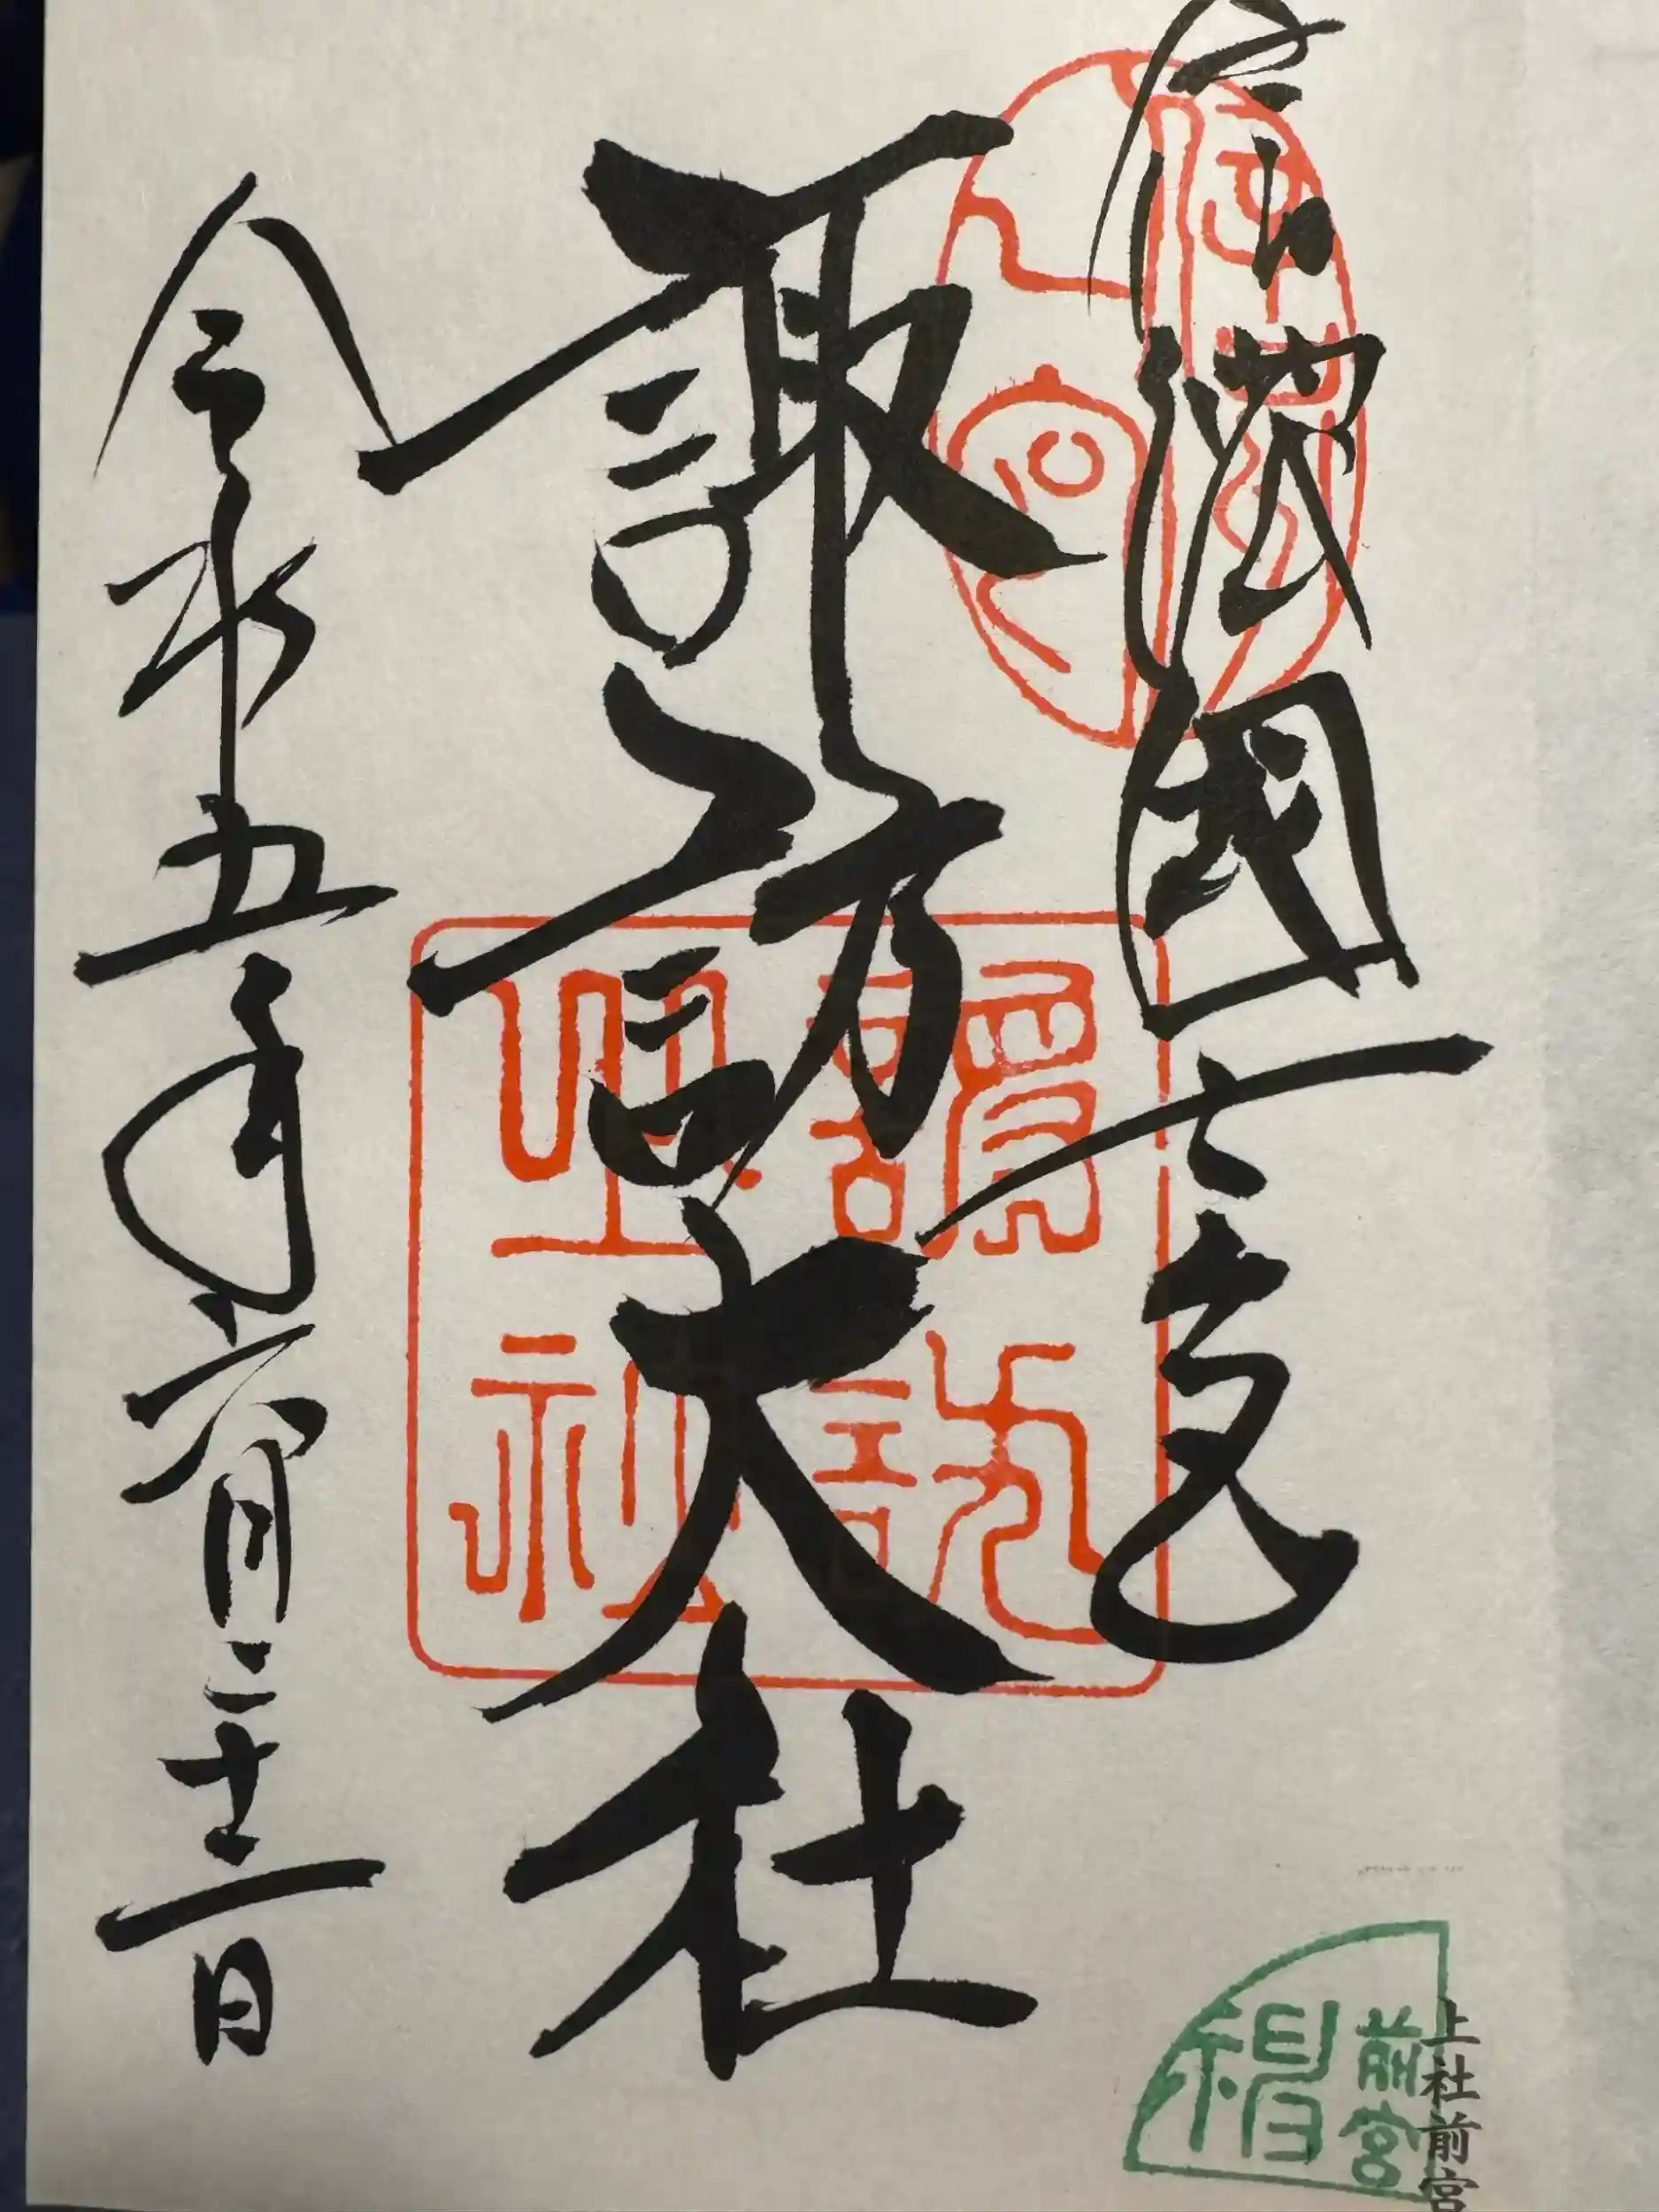 信濃國一之宮
諏訪大社
令和五年六月二十二日
前宮
上社前宮